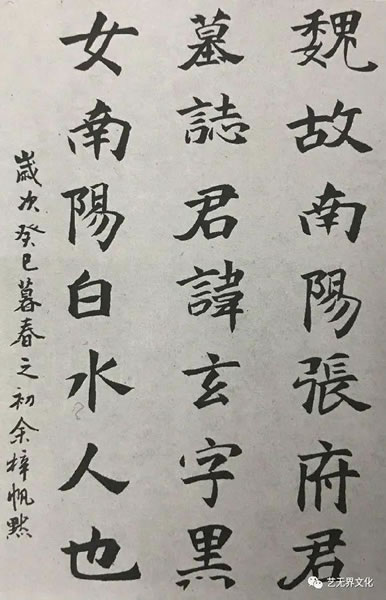 魏故南陽張府君
墓誌君諱玄字黑
女南陽白水人也
歲次癸巳暮春之初余梓帆
艺无界文化